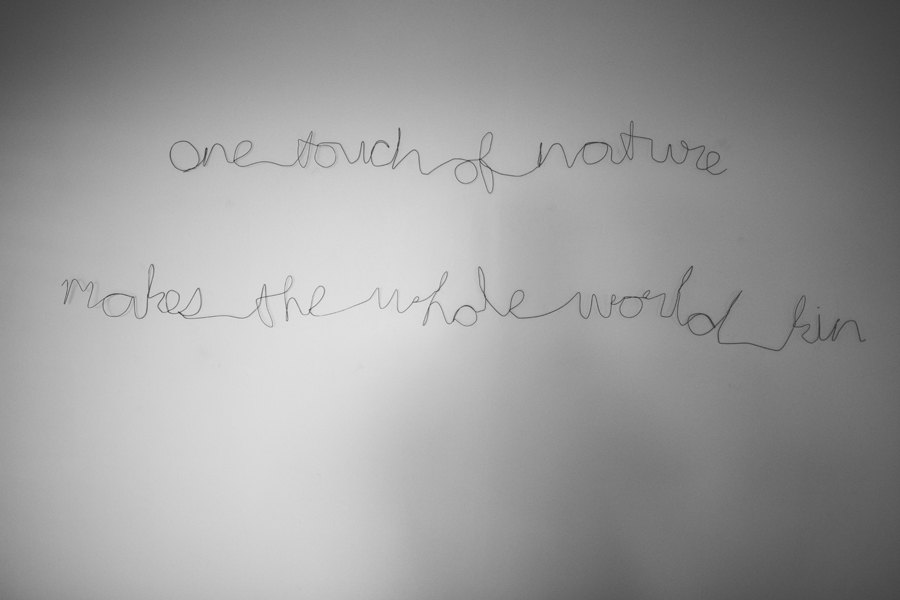 one touch of nature
makes the whole world kin